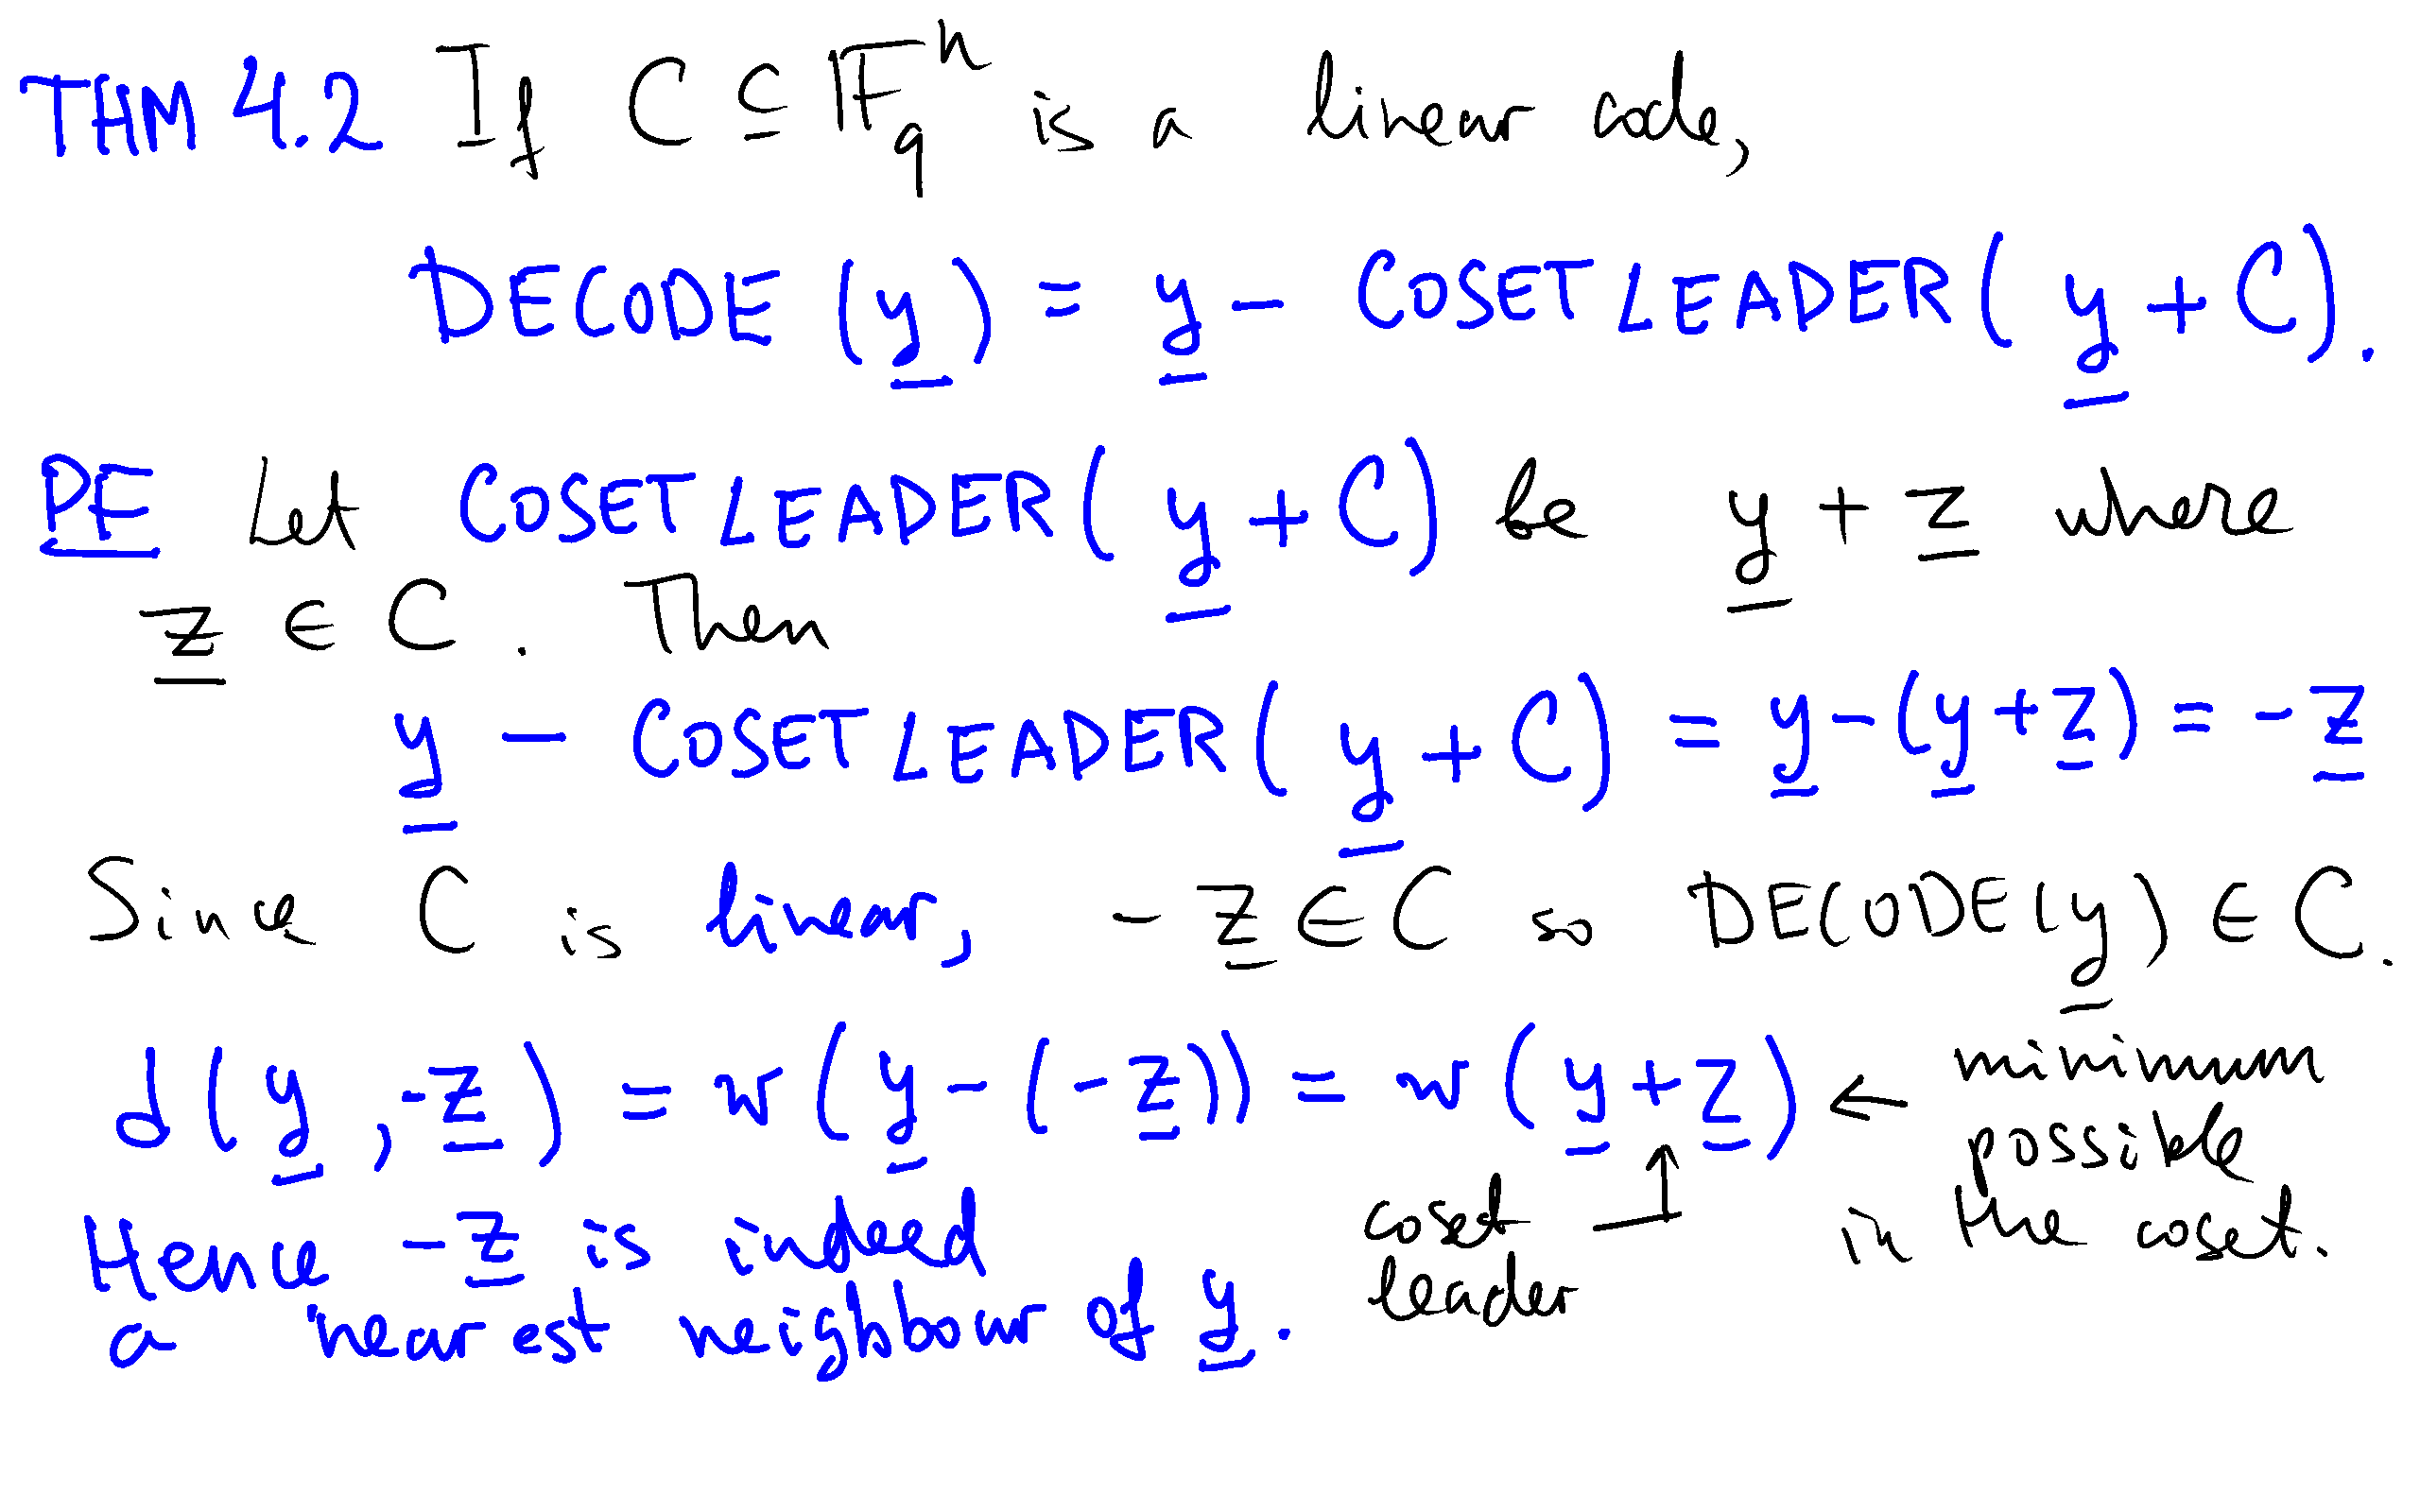 THM 4.2 If C ⊆ 𝔽_q^n is a linear code,
DECODE (y̲) = y̲ - COSET LEADER( y̲ + C).
PF Let COSET LEADER( y̲ + C) be y̲ + z̲ where
z̲ ∈ C. Then
y̲ - COSET LEADER( y̲ + C) = y̲ - (y̲ + z̲) = -z̲
Since C is linear, -z̲ ∈ C so DECODE(y̲) ∈ C.
d(y̲, -z̲) = w(y̲ - (-z̲)) = w(y̲ + z̲) ← minimum
possible
in the coset.
coset ↑
leader
Hence -z̲ is indeed
a nearest neighbour of y̲.